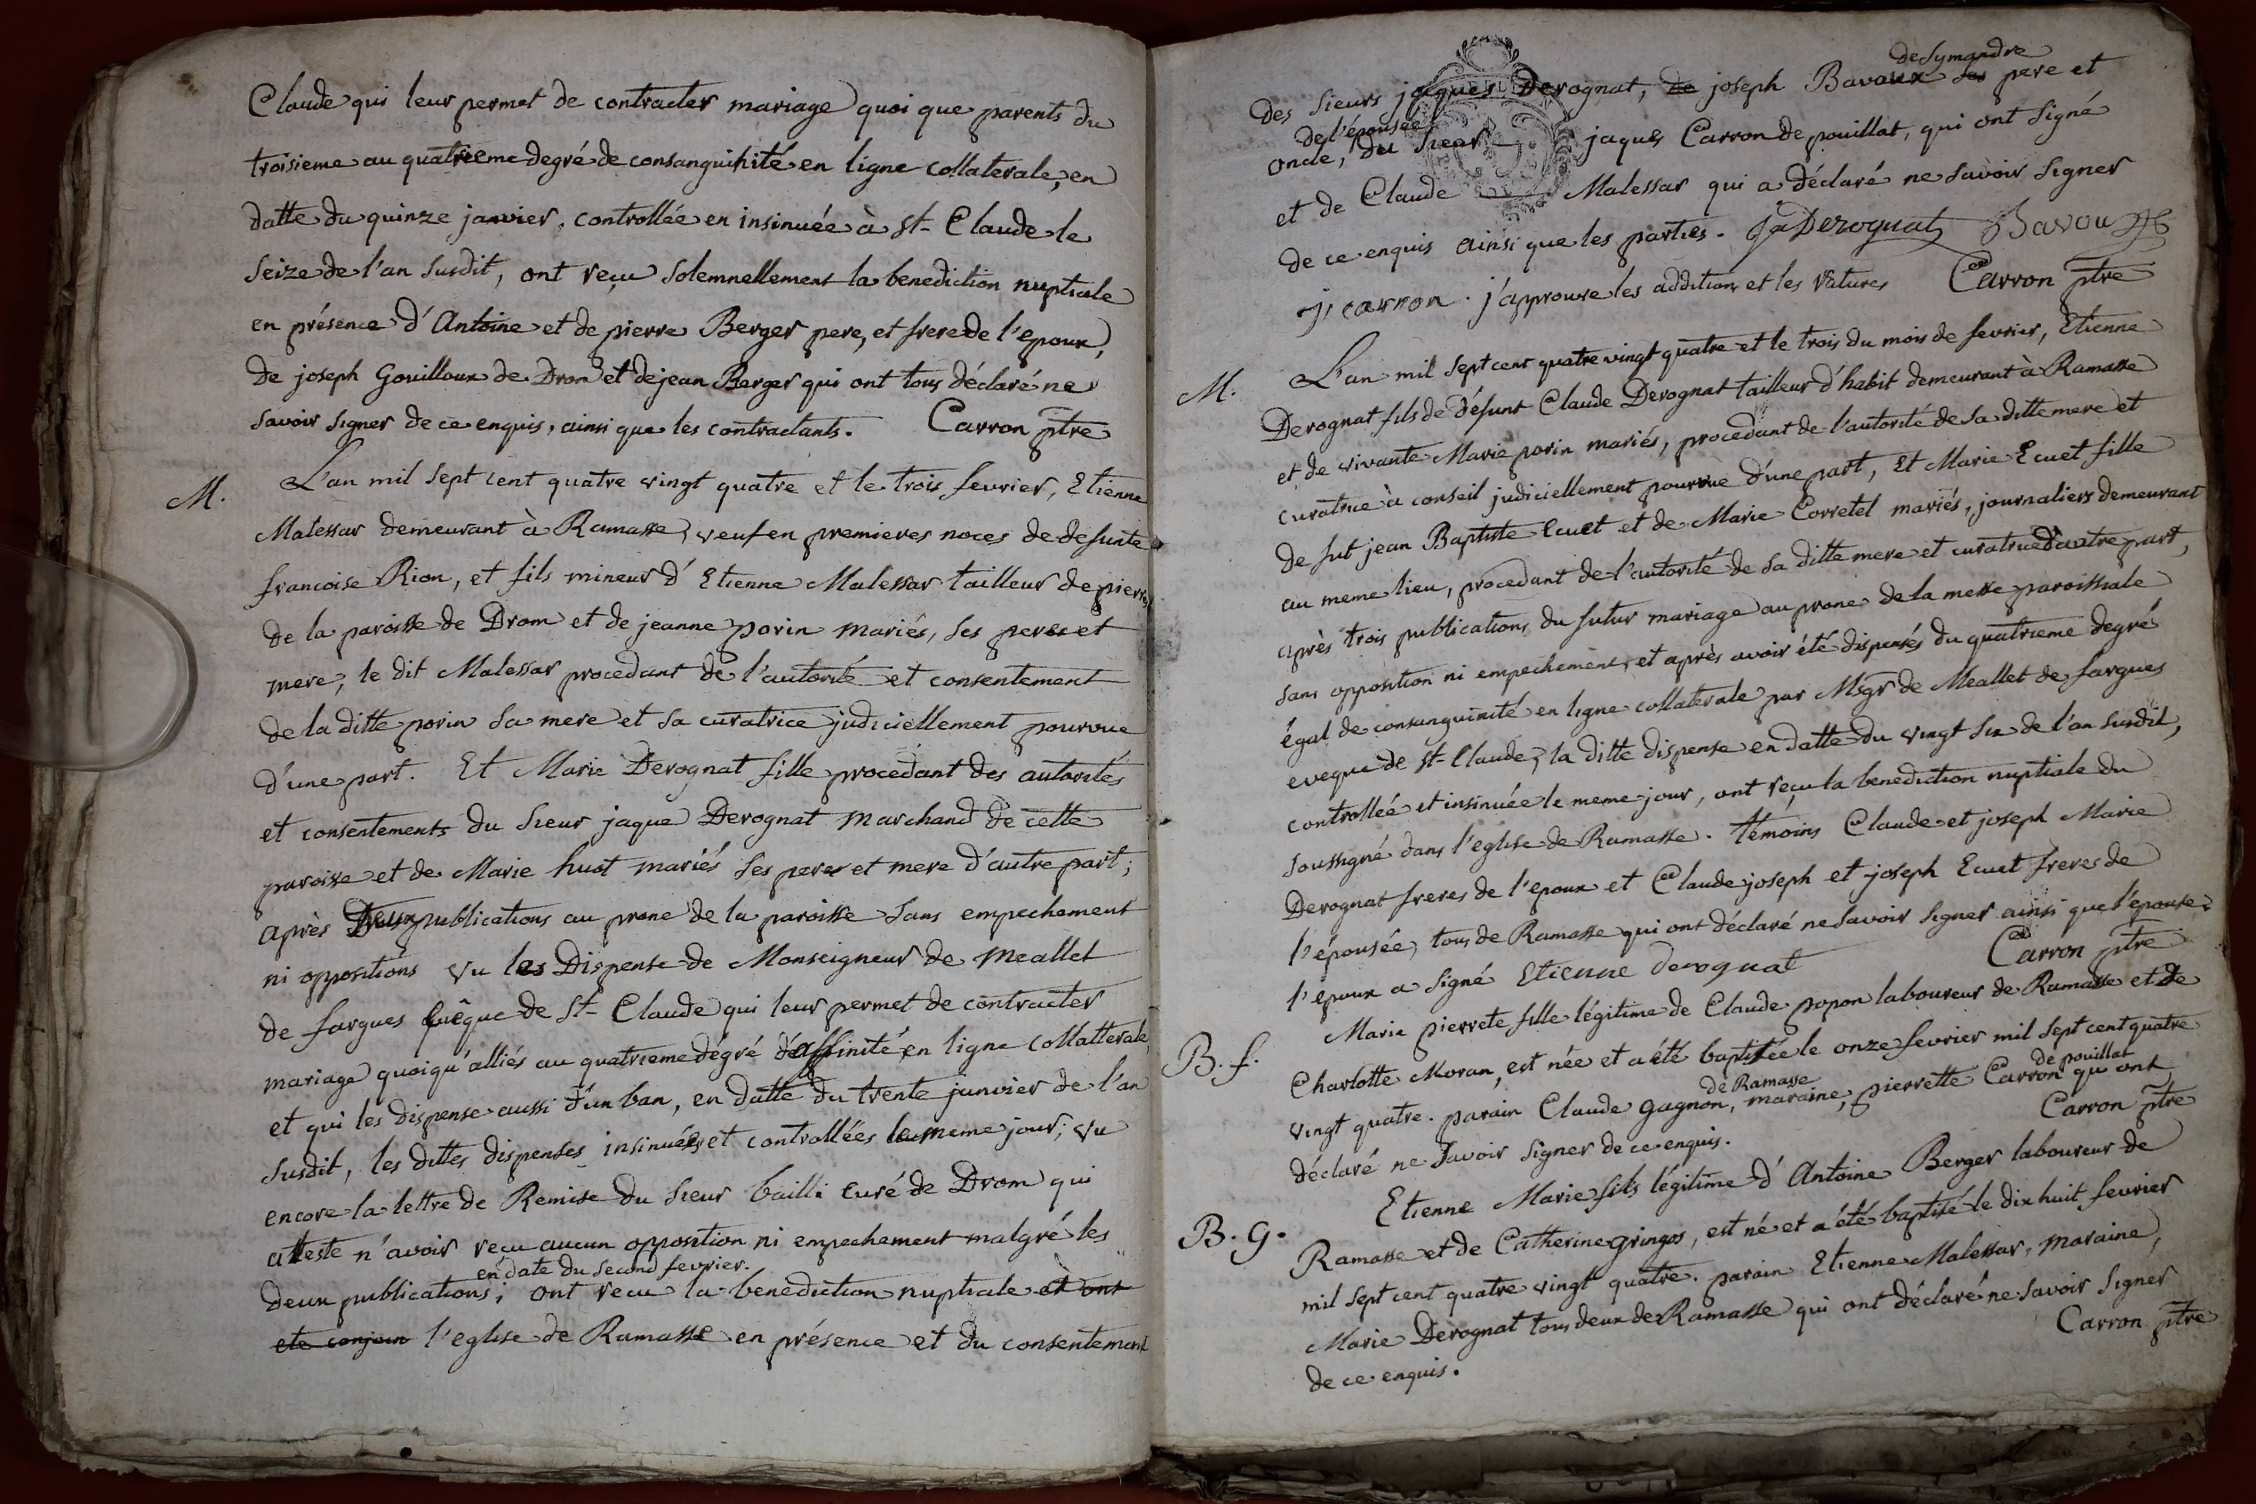 Claude qui leur permet de contracter mariage quoi que parents du
troisieme au quatrieme degré de consanguinité en ligne collaterale, en
datte du quinze janvier, controllée en insinuée à St- Claude le
seize de l'an susdit, ont reçu solemnellement la benediction nuptiale
en présence d'Antoine et de pierre Berger pere, et frere de l'epoux,
de joseph Gouilloux de Drom et de jean Berger qui ont tous déclaré ne
savoir signer de ce enquis, ainsi que les contractants. Carron ptre
M. L'an mil sept cent quatre vingt quatre et le trois fevrier, Etienne
Malessar demeurant à Ramasse, veuf en premieres noces de defunte
francoise Rion, et fils mineur d'Etienne Malessar tailleur de pierres
de la paroisse de Drom et de jeanne porin mariés, ses peres et
mere, le dit Malessar procedant de l'autorité et consentement
de la ditte porin sa mere et sa curatrice judiciellement pourvue
d'une part. Et Marie Derognat fille procedant des autorités
et consentements du sieur jaque Derognat marchand de cette
paroisse et de Marie huot mariés ses peres et mere d'autre part;
après Deux publications au prone de la paroisse sans empechement
ni oppositions vu les Dispense de Monseigneur de Meallet
de fargues Evêque de St- Claude qui leur permet de contracter
mariage quoiqu'alliés au quatrieme dégré d'affinité en ligne collatterale,
et qui les dispense aussi d'un ban, en datte du trente janvier de l'an
susdit, les dittes dispenses insinuées et controllées le meme jour; vu
encore la lettre de Remise du sieur bailli curé de Drom qui
atteste n'avoir reçu aucun opposition ni empechement malgré les
en date du second fevrier.
deux publications; ont recu la benediction nuptiale et ont
ete conjoin l'eglise de Ramasse en présence et du consentement
de symandre
des sieurs jaques Derognat, de joseph Bavoux ses pere et
de l'épousée
oncle, du sieur jaques Carron de pouillat, qui ont signé
et de Claude Malessar qui a déclaré ne savoir signer
de ce enquis ainsi que les parties. Ja Derognat Bavoux
j, carron. j'approuve les additions et les ratures Carron ptre
M. L'an mil sept cent quatre vingt quatre et le trois du mois de fevrier, Etienne
Derognat fils de défunt Claude Derognat tailleur d'habit demeurant à Ramasse
et de vivante Marie porin mariés, procedant de l'autorité de sa ditte mere et
curatrice à conseil judiciellement pourvue d'une part, Et Marie Ecuet fille
de fut jean Baptiste Ecuet et de Marie Corretel mariés, journaliers demeurant
au meme lieu, procedant de l'autorité de sa ditte mere et curatrice d'autre part,
après trois publications du futur mariage au prone de la messe paroissiale
sans opposition ni empechement, et après avoir été dispensés du quatrieme degré
égal de consanguinité en ligne collaterale par Msgr de Meallet de fargues
eveque de St- Claude, la ditte dispense en datte du vingt six de l'an susdit,
controllée et insinuée le meme jour, ont reçu la benediction nuptiale du
soussigné dans l'eglise de Ramasse. témoins Claude et joseph Marie
Derognat freres de l'epoux et Claude joseph et joseph Ecuet freres de
l'épousée, tous de Ramasse qui ont déclaré ne savoir signer ainsi que l'épouse.
l'epoux a signé Etienne derognat Carron ptre
B. f. Marie pierrete fille légitime de Claude popon laboureur de Ramasse et de
Charlotte Moran, est née et a été baptisée le onze fevrier mil sept cent quatre
de Ramasse de pouillat
vingt quatre. parain Claude gagnon, maraine, pierrette Carron qu ont
déclaré ne savoir signer de ce enquis. Carron ptre
B. G. Etienne Marie fils légitime d'Antoine Berger laboureur de
Ramasse et de Catherine gringos, est né et a été baptisé le dix huit fevrier
mil sept cent quatre vingt quatre. parain Etienne Malessar, maraine,
Marie Derognat tous deux de Ramasse qui ont déclaré ne savoir signer
de ce enquis. Carron ptre